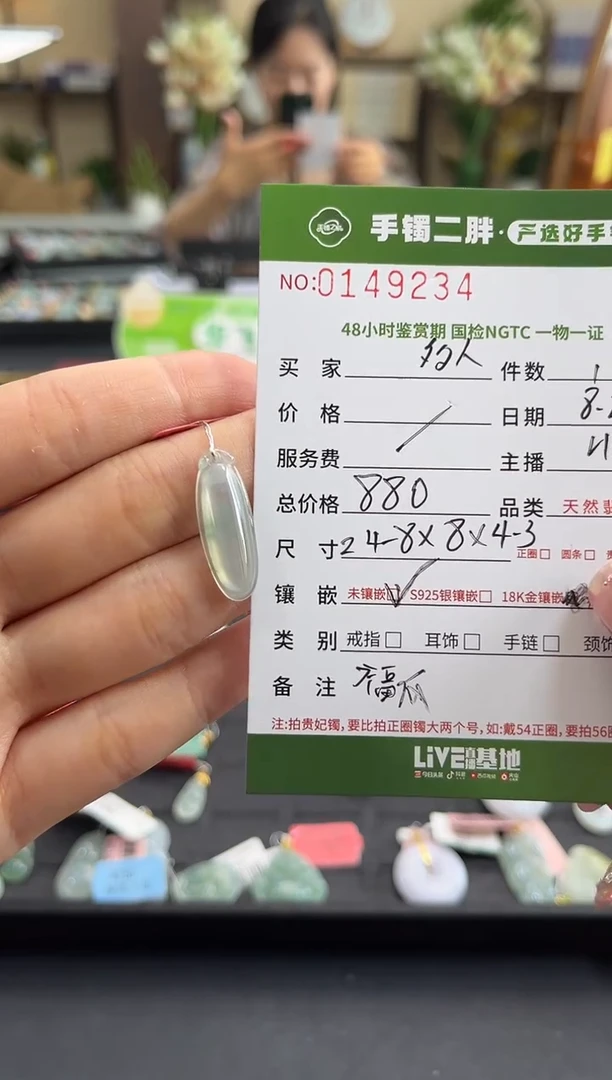 手镯二胖·严选好手
NO:0149234
48小时鉴赏期 国检NGTC 一物一证
买 家 件数 1
价 格 / 日期 8-
服务费 主播
总价格 880 品类 天然翡
尺 寸 24-8×8×4-3 正圈□ 圆条□
镶 嵌 未镶嵌☑ S925银镶嵌□ 18K金镶嵌
类 别 戒指□ 耳饰□ 手链□ 颈饰
备 注 福瓜
注:拍贵妃镯,要比拍正圈镯大两个号,如:戴54正圈,要拍56
LiVE直播基地
今日头条 抖音